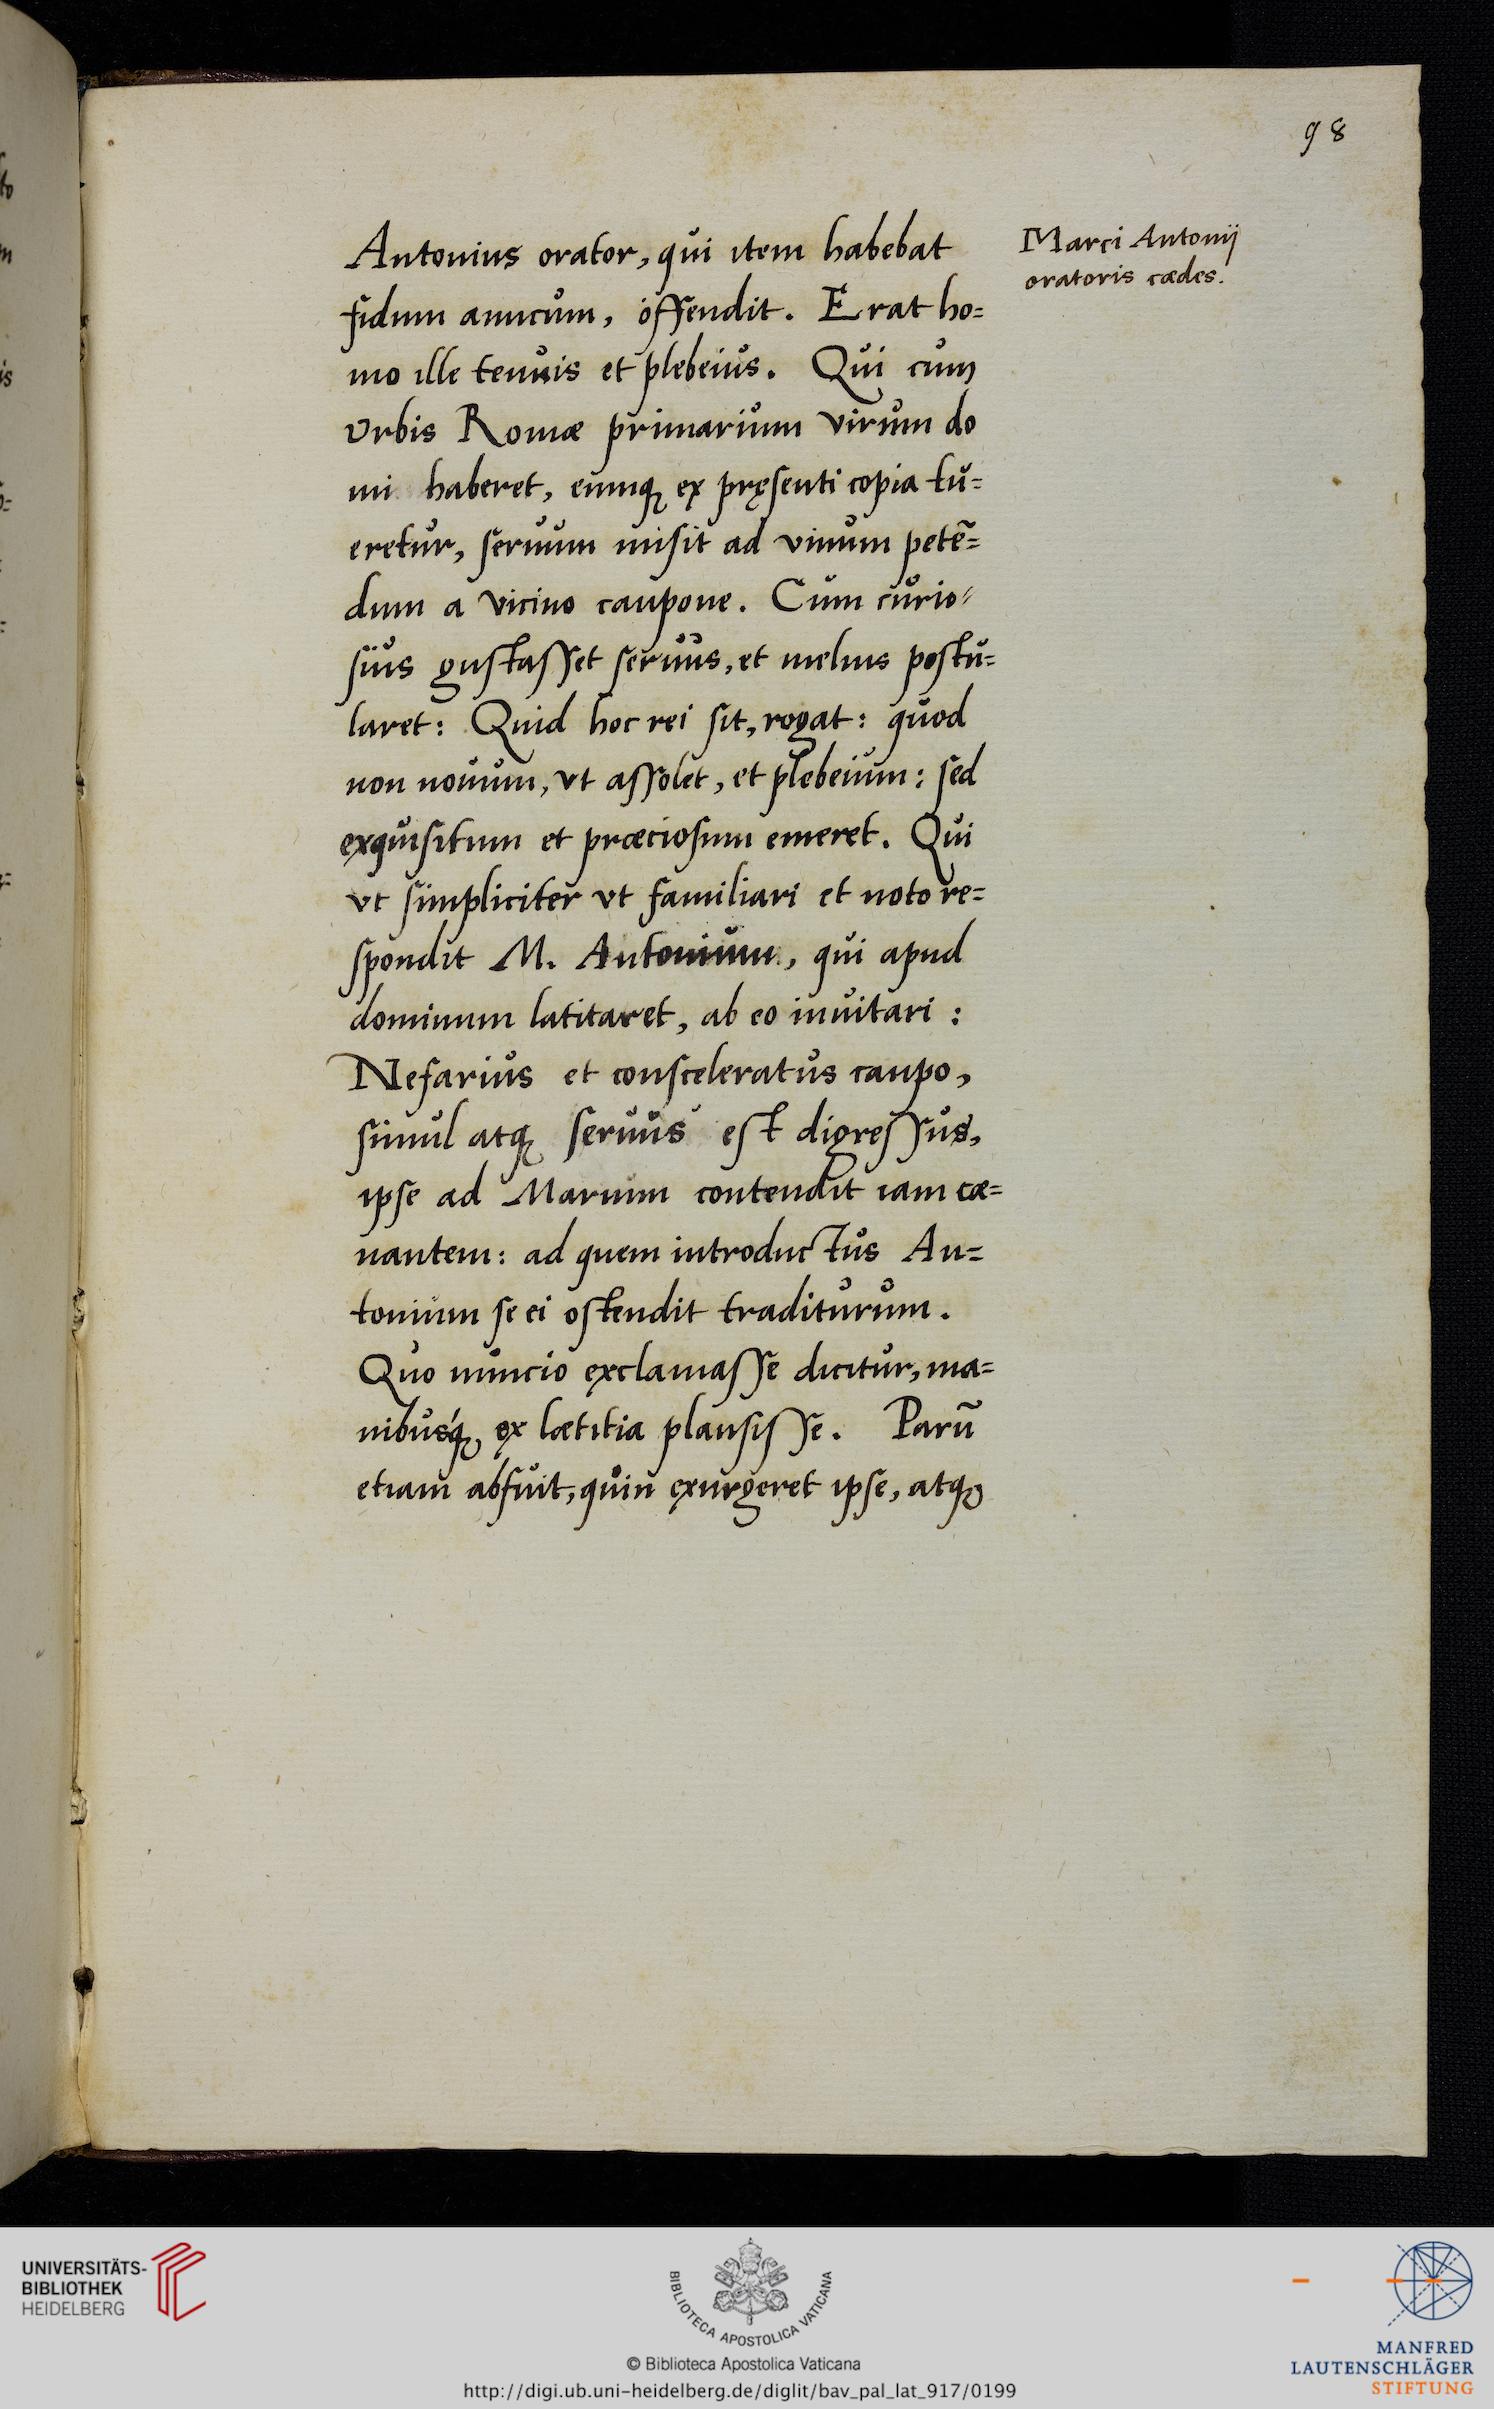 98
Antonius orator, qui item habebat
fidum amicum, offendit. Erat ho=
mo ille tenuis et plebeius. Qui cum
Vrbis Romæ primarium virum do
mi haberet, eumq; ex pręsenti copia tu=
eretur, seruum misit ad vinum petē=
dum a vicino caupone. Cum curio=
sius gustasset seruus, et melius postu=
laret: Quid hoc rei sit, rogat: quod
non nouum, vt assolet, et plebeium: sed
exquisitum et præciosum emeret. Qui
vt simpliciter vt familiari et noto re=
spondit M. Antonium, qui apud
dominum latitaret, ab eo inuitari:
Nefarius et consceleratus caupo,
simul atq; seruus est digressus,
ipse ad Marium contendit iam cæ=
nantem: ad quem introductus An=
tonium se ei ostendit traditurum.
Quo nuncio exclamasse dicitur, ma=
nibusq́; ex lætitia plausisse. Parū
etiam abfuit, quin exurgeret ipse, atq;
Marci Antonij
oratoris cædes.
UNIVERSITÄTS-
BIBLIOTHEK
HEIDELBERG
BIBLIOTECA APOSTOLICA VATICANA
© Biblioteca Apostolica Vaticana
http://digi.ub.uni-heidelberg.de/diglit/bav_pal_lat_917/0199
MANFRED
LAUTENSCHLÄGER
STIFTUNG